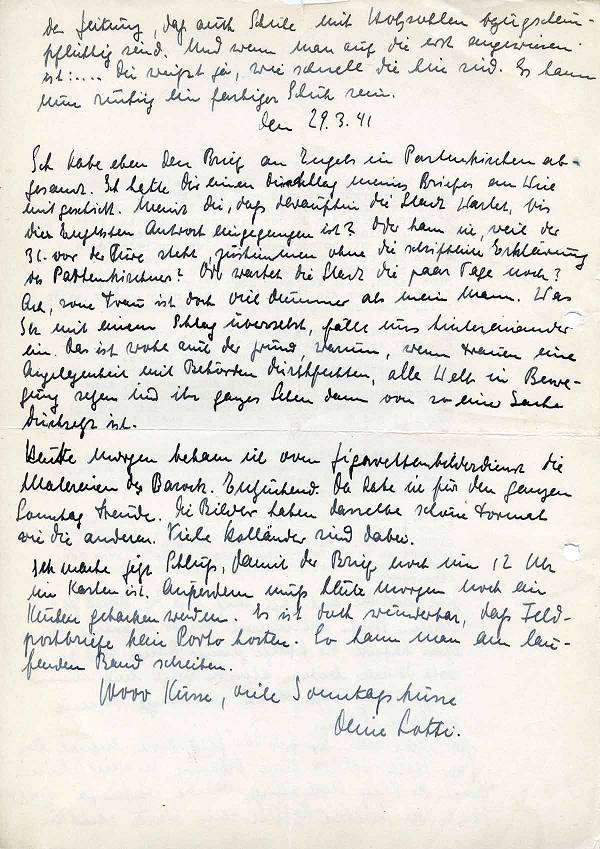 der Zeitung, daß auch Schuhe mit Holzsohlen bezugschein-
pflichtig sind. Und wenn man auf die erst angewiesen
ist:.... Du weißt ja, wie schnell die hin sind. Es kann
nun ruhig ein farbiger Schuh sein.
den 29.3.41
Ich habe eben den Brief an Engels in Partenkirchen ab-
gesandt. Ich hatte Dir einen Durchschlag meines Briefes an
mitgeschickt. Meinst du, daß daraufhin die Stadt wartet, bis
die Antwort eingegangen ist? Oder kann sie, weil der
31. vor der Türe steht, zustimmen ohne die schriftliche Erklärung
des Partenkirchner? Oder wartet die Stadt die paar Tage noch?
Ach, so ne Frau ist doch viel dümmer als mein Mann. Was
Ihr mit einem Schlag überseht, fällt uns hintereinander
ein. Das ist wohl auch der Grund, warum, wenn Frauen eine
Angelegenheit mit Behörden durchfechten, alle Welt in Bewe-
gung setzen und ihr ganzes Leben dann von so einer Sache
durchsetzt ist.
Heute morgen bekam ich vom Zigarettenbilderdienst die
Malereien des Barock. Entzückend. Da habe ich für den ganzen
Sonntag Freude. Die Bilder haben dasselbe schöne Format
wie die anderen. Viele Holländer sind dabei.
Ich mache jetzt Schluß, damit der Brief noch um 12 Uhr
im Kasten ist. Außerdem muß heute morgen noch ein
Kuchen gebacken werden. Es ist doch wunderbar, daß Feld-
postbriefe kein Porto kosten. So kann man am lau-
fenden Band schreiben.
1000 Küsse, viele Sonntagsküsse
Deine Lotti.